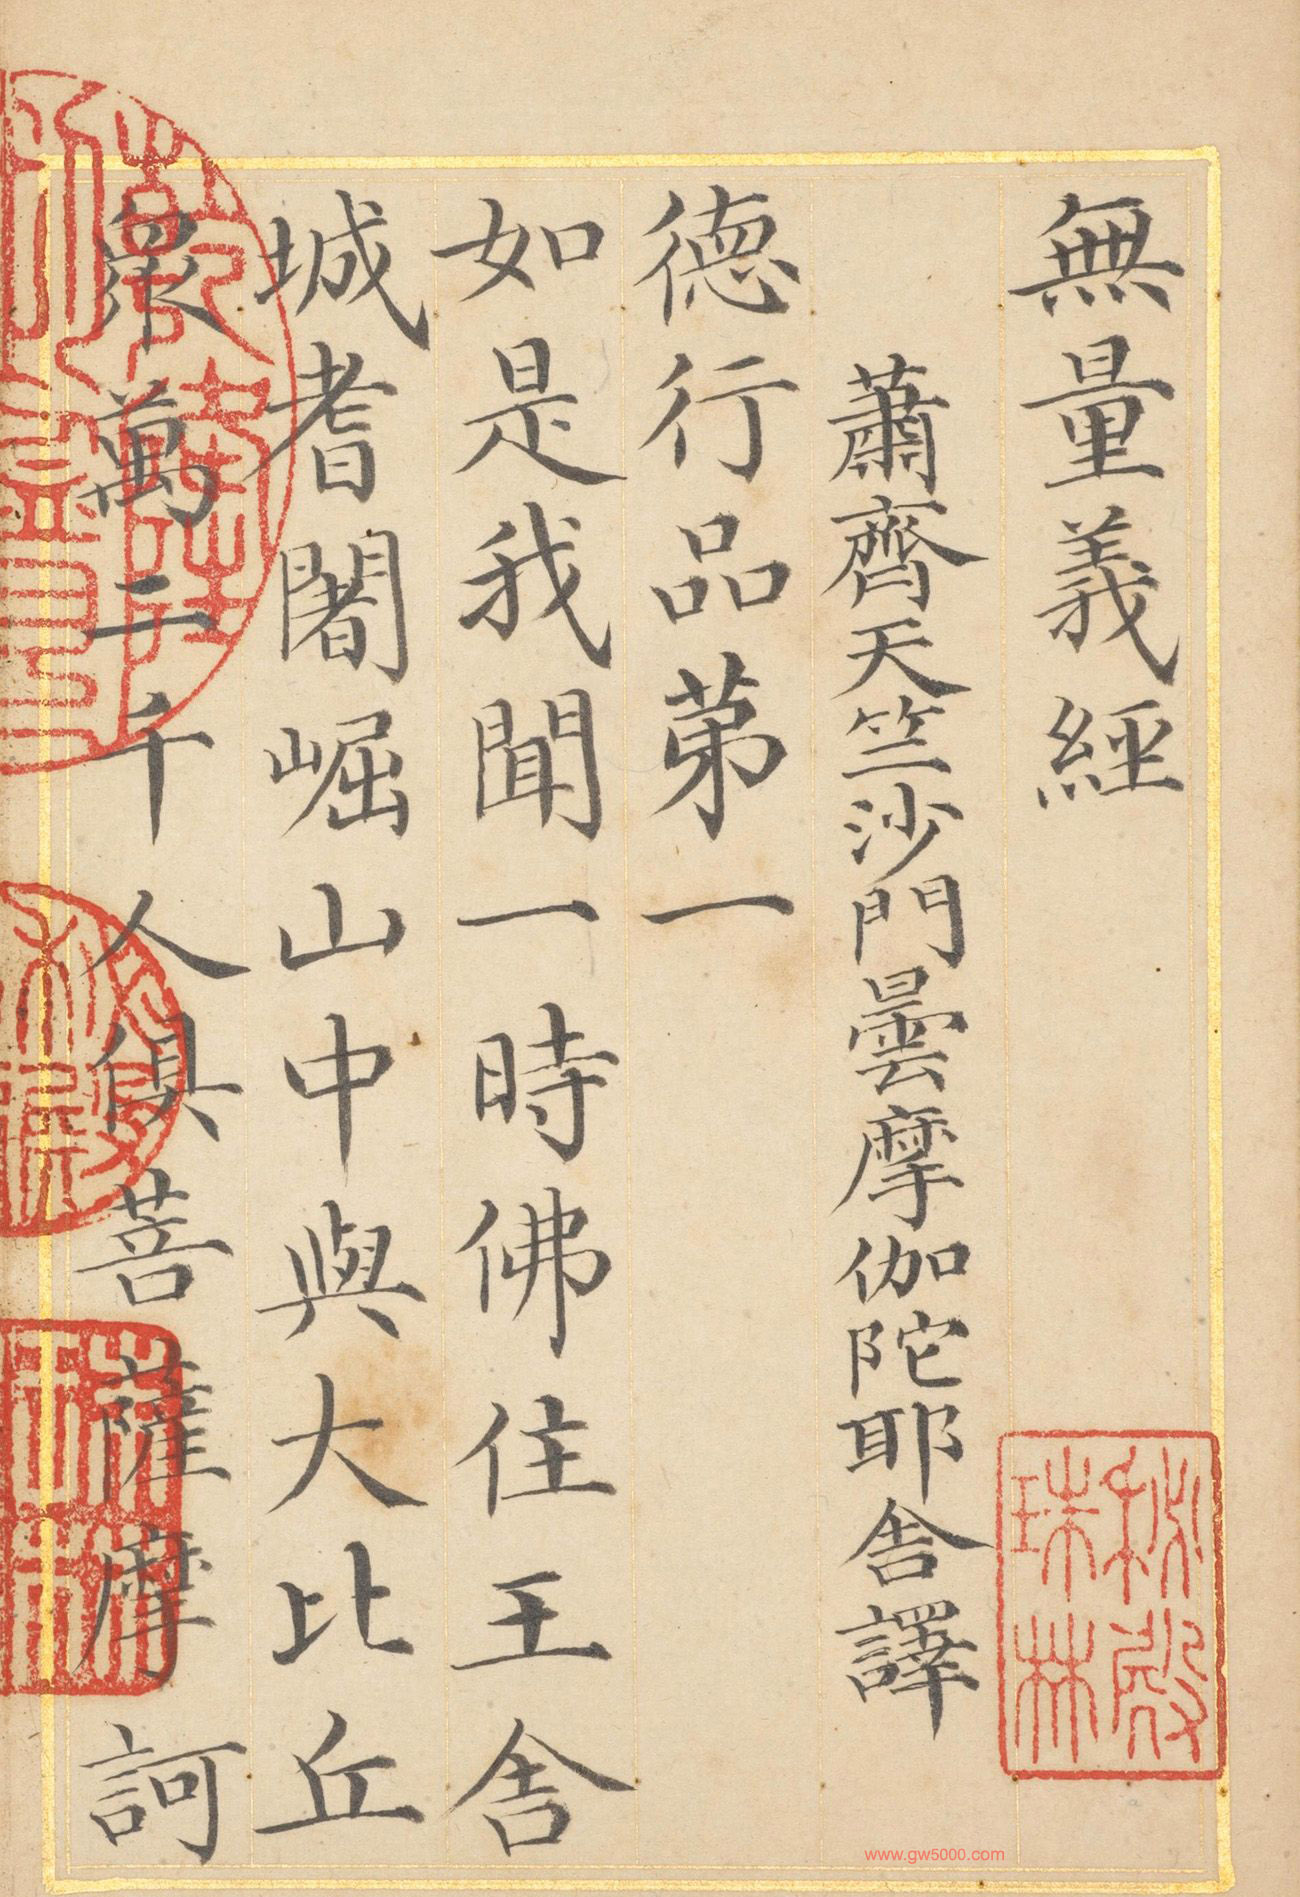 無量義經
蕭齊天竺沙門曇摩伽陀耶舍譯
德行品第一
如是我聞一時佛住王舍
城耆闍崛山中與大比丘
眾萬二千人俱菩薩摩訶
秘殿珠林
www.gw5000.com